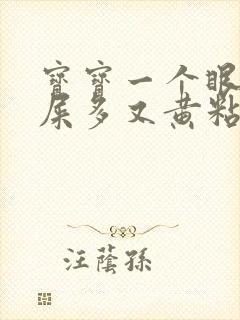 寶寶一个眼
屎多又黄粘
汪蔭孫